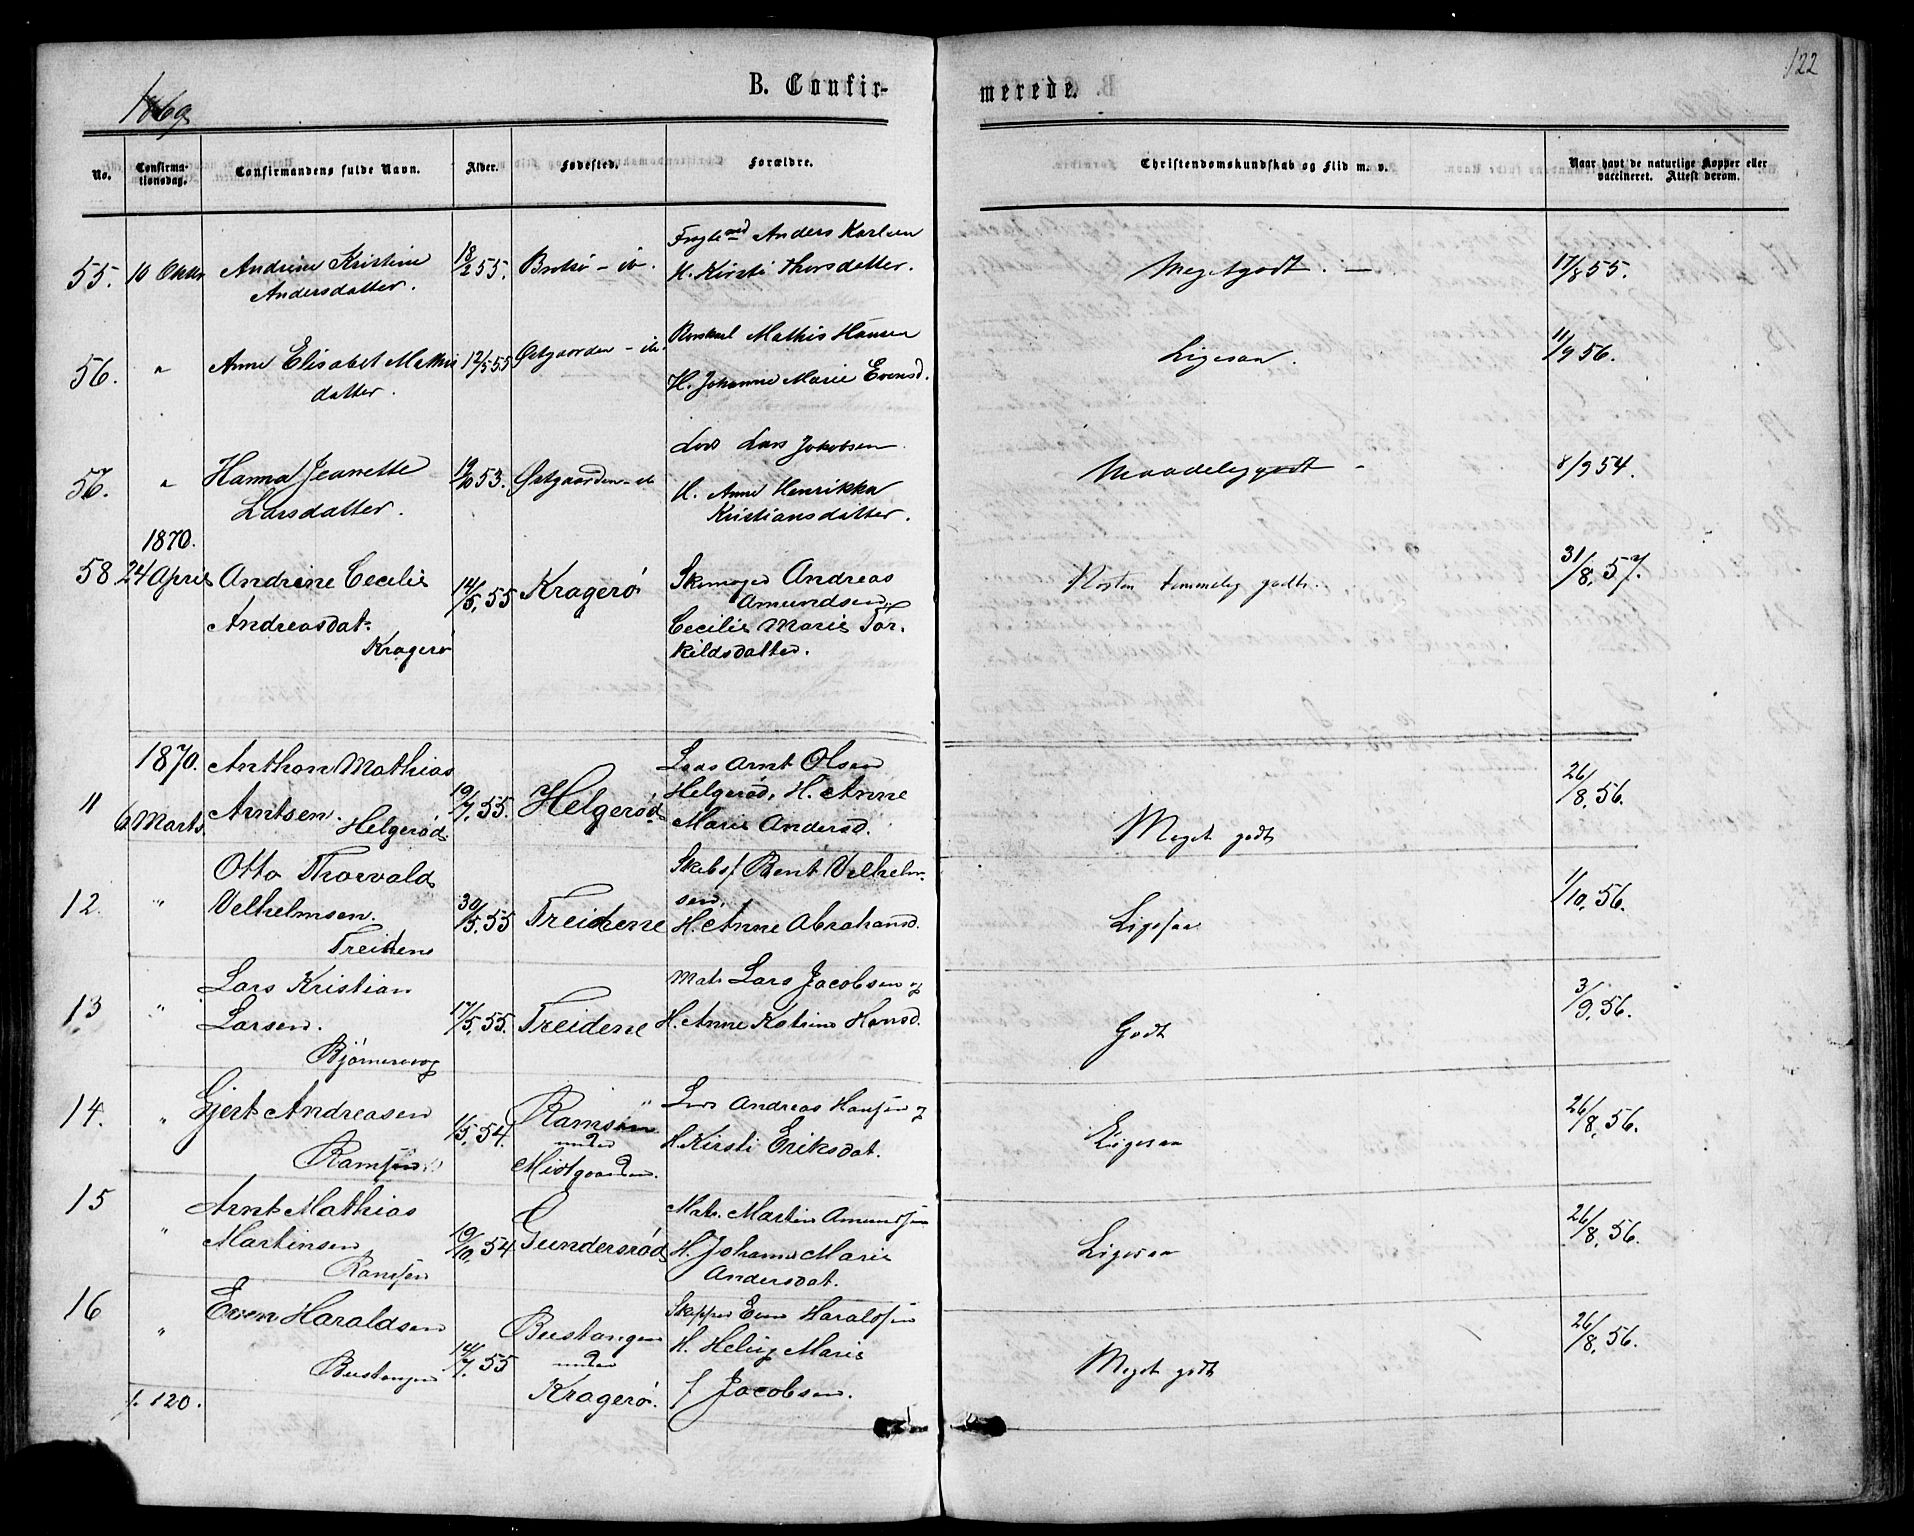 122
1869
B. Confir-
merede.
No.
Confirma-
tionsdag.
Confirmandens fulde Navn.
Alder.
Fødested.
Forældre.
Christendomskundskab og Flid m. v.
Naar havt de naturlige Kopper eller
vaccineret. Attest derom.
55. 10 Octbr Andrine Kristine 18/2 55. Brotsø - ib. Anders Karlsen
Andersdatter. H. Kirsti Thorsdatter. Megetgodt. - 17/8 55.
56. " Anne Elisabet Mathis 12/5 55 Østgaarden - ib. Mathis Hansen
datter. H. Johanne Marie Evensd. Ligesaa. 11/9 56.
57. " Hanna Jeanette 19/10 53. Østgaarden - ib Lods Lars Jakobsen
Larsdatter. H. Anne Henrikka
Kristiansdatter. Maadeliggodt - 8/9 54.
1870.
58 24 April Andrine Cecilie 14/5. 55 Kragerø Skomager Andreas
Andreasdat. Amundsen
Kragerø Cecilie Marie Tor-
kildsdatter. Næsten temmelig godt. 31/8. 57.
1870. Anthon Mathias Lods Arnt Olsen
11 6 Marts. Arntsen. 19/7. 55. Helgerød Helgerød, H. Anne
Helgerød Marie Andersd. Meget godt 26/8. 56.
Otto Thorvald Skibsf. Bent Vilhelm-
12. " Velhelmsen. 30/5. 55 Treidene sen.
Treidene H. Anne Abrahamsd. Ligesaa 1/10. 56.
Lars Kristian Mat. Lars Jacobsen og
13 " Larsen. 17/5. 55. Treidene H. Anne Katrine Hansd. Godt 3/9. 56.
Bjørnevaag
14. " Gjert Andreasen 1/5. 54. Ramsøen Lods Andreas Hansen og
Ramsøen under
Midtgaarden. H. Kirsti Eriksdat. Ligesaa 26/8. 56.
15 " Arnt Mathias Mat. Martin Amundsen
Martinsen 19/10. 54 Gundersrød H. Johanne Marie
Ramsøen Andersdat. Ligesaa 26/8. 56.
16 " Even Haraldsen 14/7. 55 Bustangen Skipper Even Haraldsen
under H. Helvig Marie
Bustangen Kragerø. f. Jacobsen. Meget godt 26/8. 56.
f. 120.